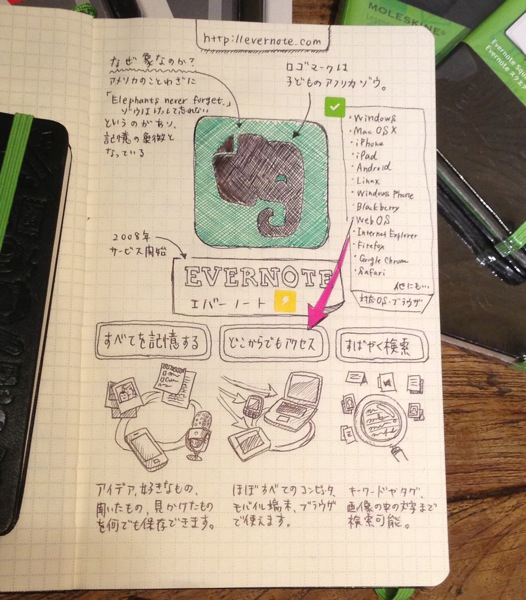 http://evernote.com
なぜ象なのか?
アメリカのことわざに
「Elephants never forget.」
ゾウはけして忘れない
というのがあり、
記憶の象徴と
なっている
ロゴマークは
子どものアフリカゾウ。
・Windows
・Mac OS X
・iPhone
・iPad
・Android
・Linux
・Windows Phone
・Blackberry
・Web OS
・Internet Explorer
・Firefox
・Google Chrome
・Safari
他にも…
対応OS・ブラウザ
2008年
サービス開始
EVERNOTE
エバーノート
すべてを記憶する
どこからでもアクセス
すばやく検索
アイデア、好きなもの、
聞いたもの、見かけたもの
を何でも保存できます。
ほぼすべてのコンピュータ、
モバイル端末、ブラウザ
で使えます。
キーワードやタグ、
画像の中の文字まで
検索可能。
MOLESKINE